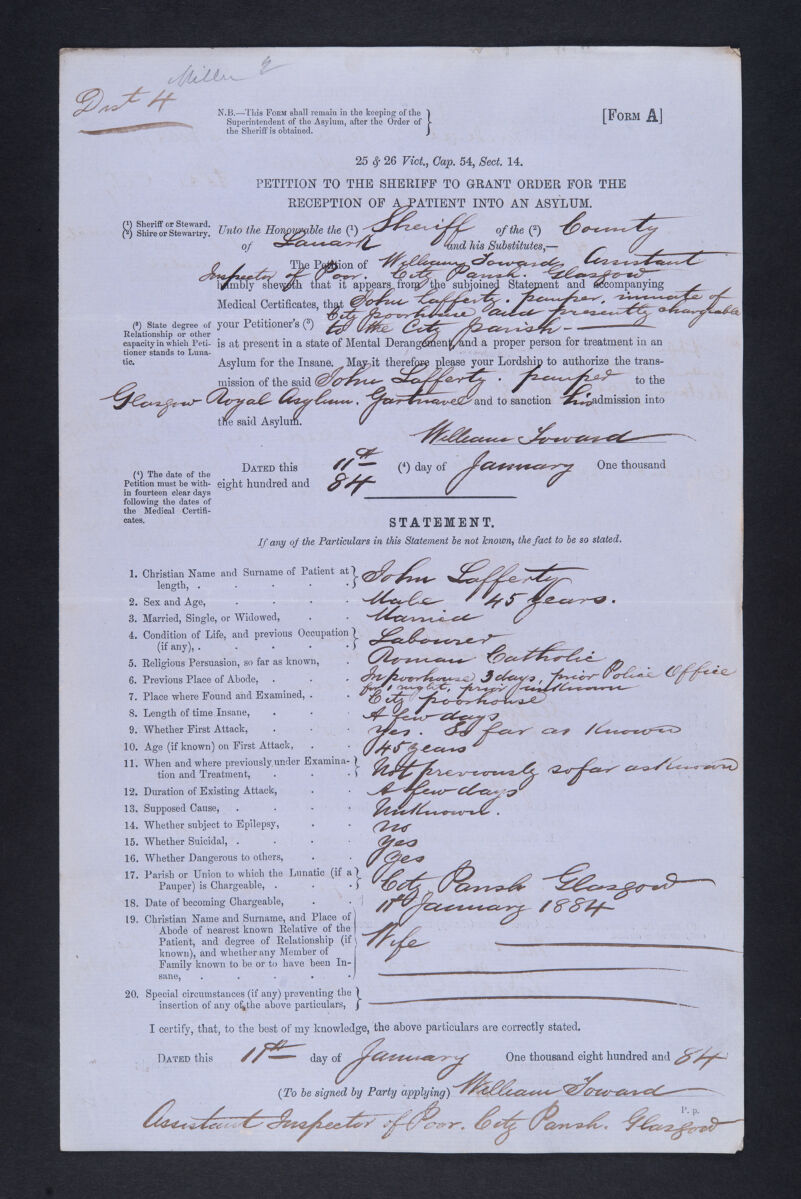 Miller
Dist 4
N.B.—This Form shall remain in the keeping of the
Superintendent of the Asylum, after the Order of
the Sheriff is obtained.
[Form A]
25 & 26 Vict., Cap. 54, Sect. 14.
PETITION TO THE SHERIFF TO GRANT ORDER FOR THE
RECEPTION OF A PATIENT INTO AN ASYLUM.
(¹) Sheriff or Steward.
(²) Shire or Stewartry.
Unto the Honourable the (¹) Sheriff of the (²) County
of Lanark and his Substitutes,—
The Petition of William Toward, Assistant
Inspector of Poor. City Parish. Glasgow
humbly sheweth that it appears from the subjoined Statement and accompanying
Medical Certificates, that John Lafferty. pauper, inmate of
City poorhouse and presently chargeable
(³) State degree of
Relationship or other
capacity in which Peti-
tioner stands to Luna-
tic.
your Petitioner's (³) to the City parish -
is at present in a state of Mental Derangement, and a proper person for treatment in an
Asylum for the Insane. May it therefore please your Lordship to authorize the trans-
mission of the said John Lafferty. pauper to the
Glasgow Royal Asylum. Gartnavel and to sanction his admission into
the said Asylum.
William Toward
(⁴) The date of the
Petition must be with-
in fourteen clear days
following the dates of
the Medical Certifi-
cates.
Dated this 11th (⁴) day of January One thousand
eight hundred and 84
STATEMENT.
If any of the Particulars in this Statement be not known, the fact to be so stated.
1. Christian Name and Surname of Patient at
length, . John Lafferty
2. Sex and Age, Male 45 years.
3. Married, Single, or Widowed, Married
4. Condition of Life, and previous Occupation
(if any), . Labourer
5. Religious Persuasion, so far as known, Roman Catholic
6. Previous Place of Abode, In poorhouse 3 days, prior Police Office
for 1 night, prior unknown
7. Place where Found and Examined, City poorhouse
8. Length of time Insane, A few days
9. Whether First Attack, Yes. So far as Known
10. Age (if known) on First Attack, 45 years
11. When and where previously under Examina-
tion and Treatment, Not previously so far as Known
12. Duration of Existing Attack, A few days
13. Supposed Cause, Unknown.
14. Whether subject to Epilepsy, No
15. Whether Suicidal, Yes
16. Whether Dangerous to others, Yes
17. Parish or Union to which the Lunatic (if a
Pauper) is Chargeable, City Parish Glasgow
18. Date of becoming Chargeable, 11th January 1884
19. Christian Name and Surname, and Place of
Abode of nearest known Relative of the
Patient, and degree of Relationship (if
known), and whether any Member of
Family known to be or to have been In-
sane, Wife
20. Special circumstances (if any) preventing the
insertion of any of the above particulars,
I certify, that, to the best of my knowledge, the above particulars are correctly stated.
Dated this 11th day of January One thousand eight hundred and 84
(To be signed by Party applying) William Toward
P. p.
Assistant Inspector of Poor. City Parish. Glasgow